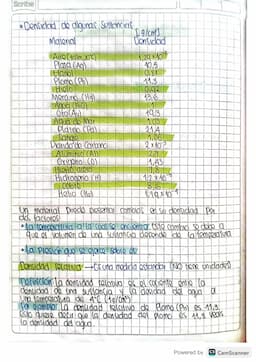 Scribe
• Densidad de algunas sustancias
Material [g/cm³] Densidad
Plata (Ag) 10.5
Plomo (Pb) 11.3
Hielo 0.92
Mercurio (Hg) 13.6
Agua 1
Oro (Au) 19.3
Agua de Mar 1.03
Platino (Pt) 21.4
Sangre 1.06
Aluminio (Al) 2.7
Cobre
Helio (He)
Un material puede presentar cambios en su densidad por
dos factores:
• La temperatura a la cual se encuentra. Este cambio se debe a
que el volumen de una sustancia depende de la temperatura
• La presión que se ejerce sobre el
Densidad relativa → Es una medida estandar (No tiene unidades)
Definición: La densidad relativa es el cociente entre la
densidad de una sustancia y la densidad del agua a
una temperatura de 4°C (1g/cm³)
Ejemplo: La densidad relativa de Plomo (Pb) es 11.3
Esto quiere decir que la densidad del plomo es 11.3 veces
la densidad del agua.
Powered by CS CamScanner